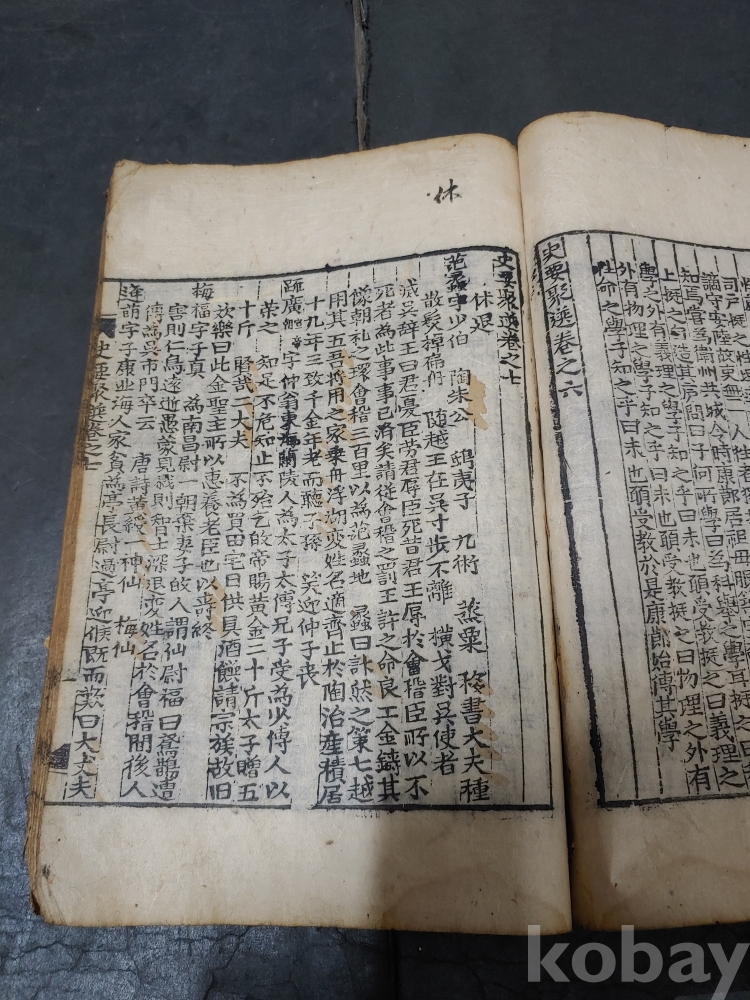 司戶
謫守安陸故史無二人牲者康節居祖母服
知爲嘗爲衛州共城令時康節居
上挺之叩造其廬問曰子何所學曰爲科擧之學耳挺之曰義理之
學之外有義理之學子知之乎曰未也願受敎挺之曰物理之外有
外有物理之學子知之乎曰未也願受敎挺之曰物理之外有
性命之學子知之乎曰未也願受敎於是康節始傳其學
史要聚選卷之六
休
史要聚選卷之七
休退
范蠡字少伯 陶朱公 鴟夷子 九術 蒸粟 移書大夫種
散髮掉扁舟 随越王在吳寸步不離 橫戈對吳使者
滅吳辞王曰君憂臣劳君辱臣死昔君王辱於會稽臣所以不
死者為此事事已済矣請從會稽之罰王許之命良工金鑄其
像朝礼之環會稽三百里以為范蠡地 蠡曰計然之策七越
用其五吾將用之家乗舟浮湖变姓名適齊止於陶治產積居
十九年三致千金年老而聽子孫 笑迎仲子丧
疏廣 字仲翁東海蘭陵人為太子太傅兄子受為少傅人以
荣之 知足不危知止不殆乞的帝賜黃金二十斤太子贈五
十斤 賢哉二大夫 不為買田宅日供具酒饌請宗族故旧
欢樂曰此金聖主所以惠養老臣也以壽終
梅福字子真 為南昌尉一朝棄妻子故人謂仙尉福曰鳶鵲遭
害則仁鳥遠逝愚蒙見戮則智士深退变姓名於會稽間後人
傳為吳市門卒云 唐詩 神仙 梅仙
逄萌字子康北海人家貧為亭長尉过亭迎候既而歎曰大丈夫
史要聚選卷之七
kobay